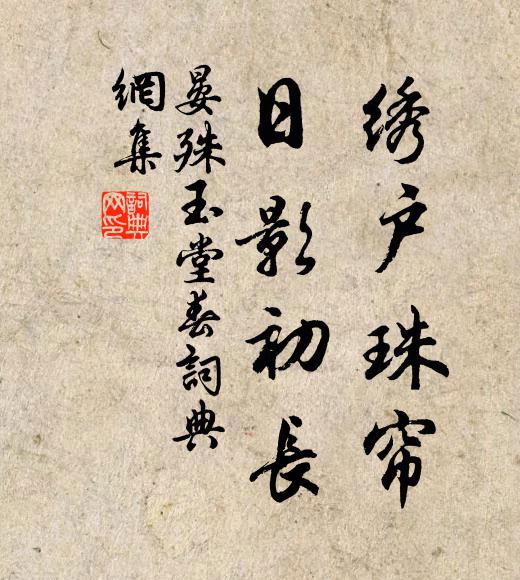 绣户珠帘
日影初長
晏殊玉堂春詞典
網集
詞典
网印